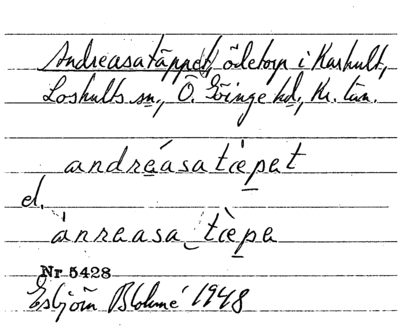 Andreasatäppet, ödetorp i Karhult,
Loshults sn, Ö. Göinge hd, Kr. län.
andreásatɛ̀pet
el.
ànreasa_tɛ̀pe
Nr 5428
Esbjörn Blohmé 1948